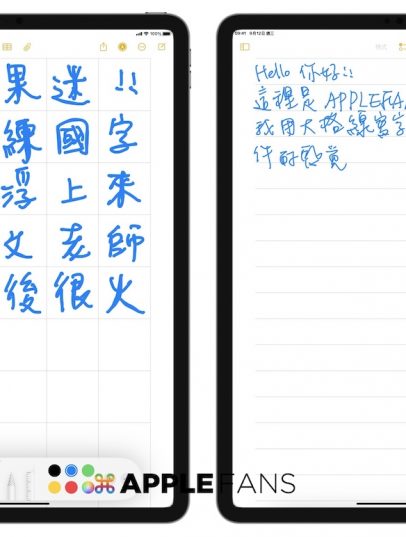 果迷!!
練國字
浮上來
文老師
後很火
09:41 9月12日 週三
100%
格式
Hello 你好!!
這裡是 APPLEFA
我用大略線寫字
件耐玩
APPLEFANS